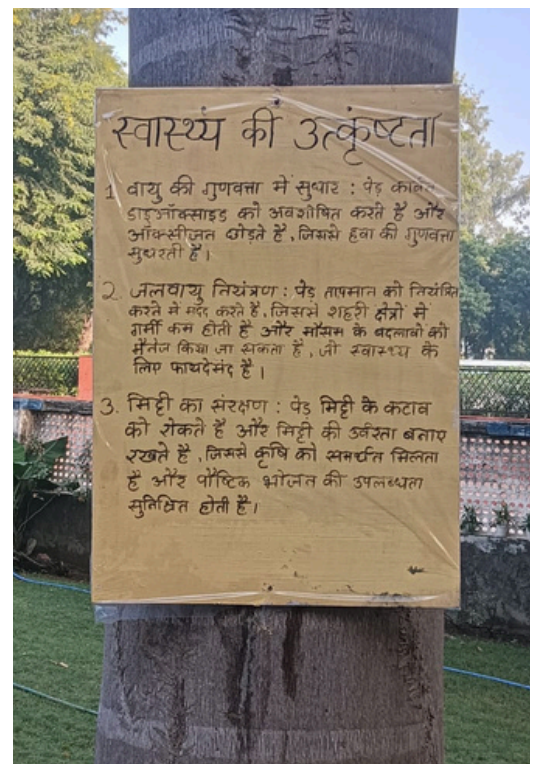 स्वास्थ्य की उत्कृष्टता
1 वायु की गुणवत्ता में सुधार : पेड़ कार्बन
डाइऑक्साइड को अवशोषित करते है और
ऑक्सीजन छोड़ते है, जिससे हवा की गुणवत्ता
सुधरती है।
2. जलवायु नियंत्रण : पेड़ तापमान को नियंत्रित
करने में मदद करते है, जिससे शहरी क्षेत्रो में
गर्मी कम होती है और मौसम के बदलावो को
मैनेज किया जा सकता है, जो स्वास्थ्य के
लिए फायदेमंद है।
3. मिट्टी का संरक्षण : पेड़ मिट्टी के कटाव
को रोकते है और मिट्टी की उर्वरता बनाए
रखते है, जिससे कृषि को समर्थन मिलता
है और पौष्टिक भोजन की उपलब्धता
सुनिश्चित होती है।